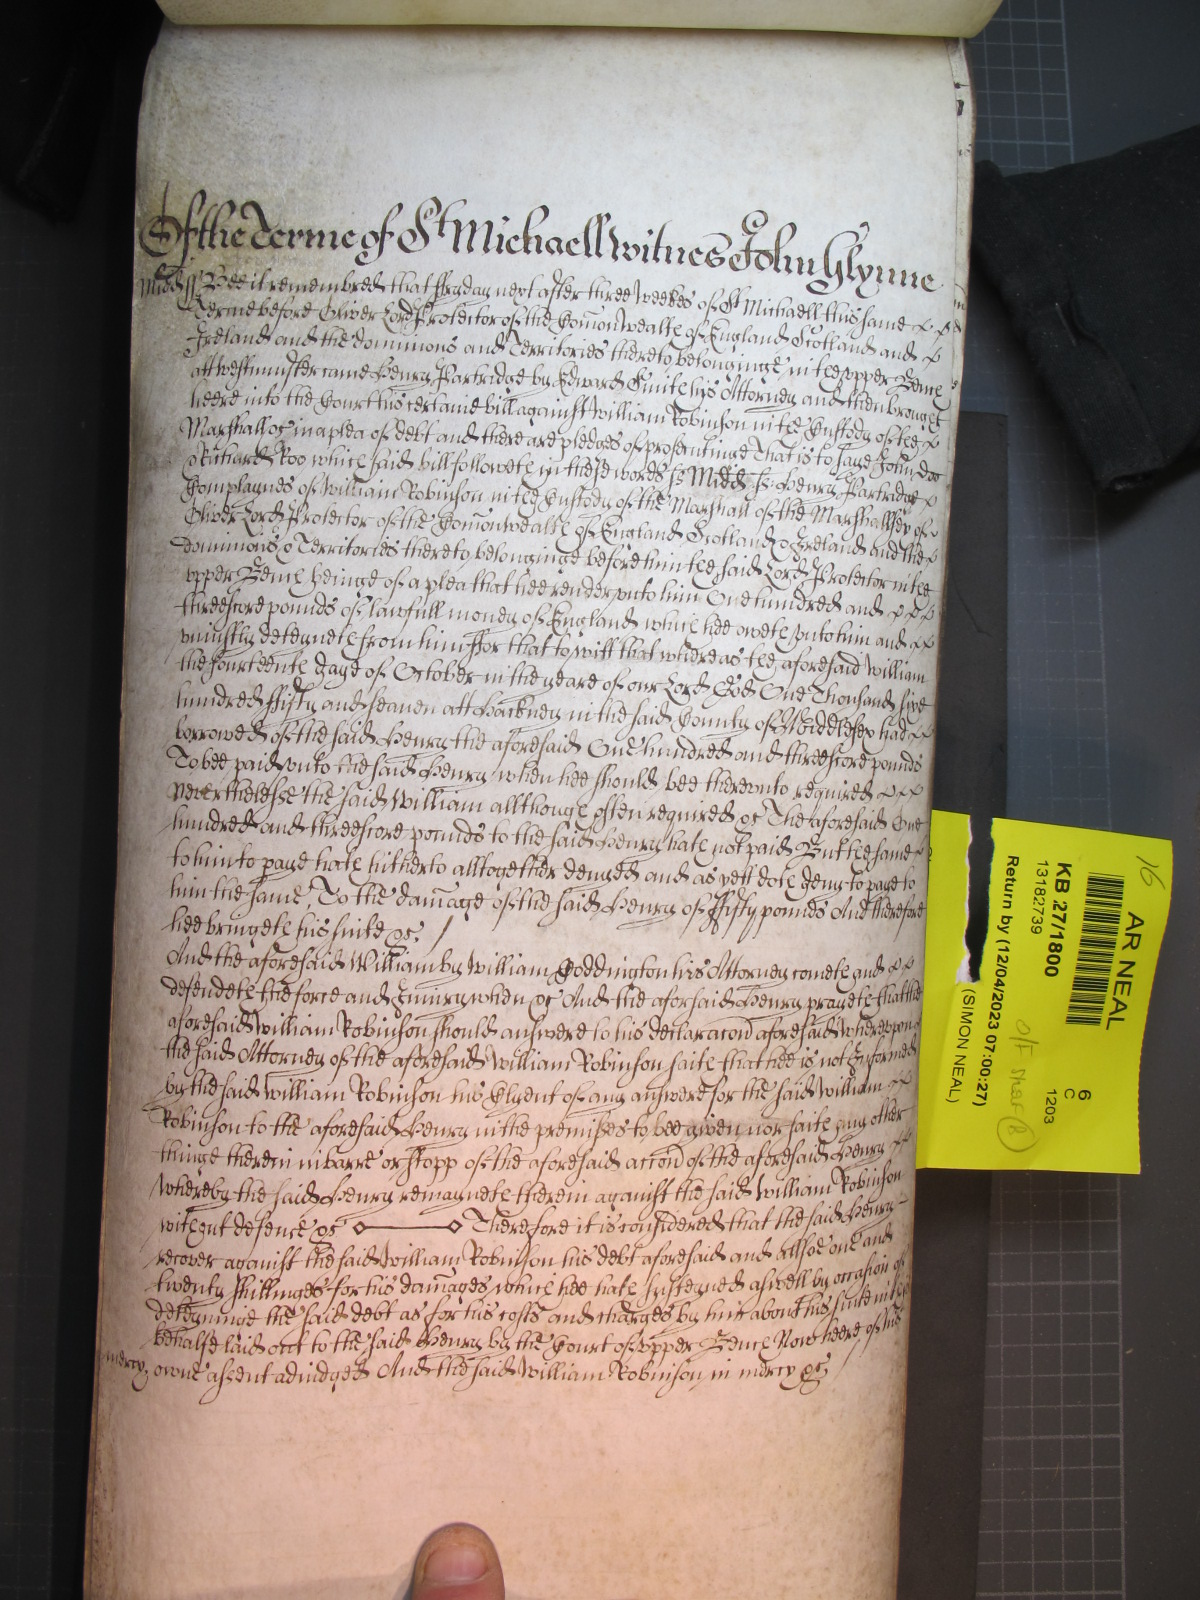 Of the Terme of St Michaell witnes John Glynne
Midd ss Bee it remembred that ffryday next after three Weekes of St Michaell this same
Terme before Oliver Lord Protector of the Com̄on Wealth of England Scotland and
Ireland and the dominions and Territories thereto belonginge in the vpper Bench
att westminster came Henry Partridge by Edward Smith his Attorney and then brought
heere into the Court his certaine bill against William Robinson in the Custody of the
Marshall &c in a plea of debt and there are pledges of prosecutinge That is to saye John Doo
& Richard Roo which said bill followeth in these words ss Midd ss Henry Partridge
Complaynes of William Robinson in the Custody of the Marshall of the Marshallsey of
Oliver Lord Protector of the Com̄onwealth of England Scotland & Ireland and the
dominions & Territories thereto belonginge before him the said Lord Protector in the
vpper Bench beinge of a plea that hee render vnto him One hundred and
threescore pounds of lawfull money of England which hee oweth vnto him and
vniustly deteyneth from him ffor that to witt that whereas the aforesaid William
the fourteenth daye of October in the yeare of our Lord God One Thousand sixe
hundred ffifty and seaven att Hackney in the said County of Middlesex had
borrowed of the said Henry the aforesaid One hundred and threescore pounds
To bee paid vnto the said Henry when hee should bee therevnto required
Neverthelesse the said William allthough often required &c The aforesaid One
hundred and threescore pounds to the said Henry hath not paid But the same
to him to paye hath hitherto alltogether denyed and as yett doth deny to paye to
him the same, To the damage of the said Henry of ffifty pounds And therefore
hee bringeth his suite &c.
And the aforesaid William by William Coddington his Attorney cometh and
defendeth the force and Iniury when &c And the aforsaid Henry prayeth that the
aforesaid William Robinson should answere to his declaracoñ aforesaid wherevpon
the said Attorney of the aforesaid William Robinson saith that hee is not Informed
by the said William Robinson his Clyent of any answere for the said William
Robinson to the aforesaid Henry in the premises to bee given nor saith any other
thinge therein in barre or stopp of the aforesaid accoñ of the aforesaid Henry
whereby the said Henry remayneth therein against the said William Robinson
without defence &c Therefore it is considered that the said Henry
recover against the said William Robinson his debt aforesaid and allsoe one and
twenty shillinges for his damages which hee hath susteyned aswell by occasion of
deteyninge the said debt as for his costs and charges by him about his suite in this
behalfe laid out to the said Henry by the Court of vpper Bench Now heere of his
mercy. owne assent adiudged And the said William Robinson in mercy &c
16
AR NEAL
KB 27/1800
13182739
Return by (12/04/2023 07:00:27)
(SIMON NEAL)
6
C
1203
O/F